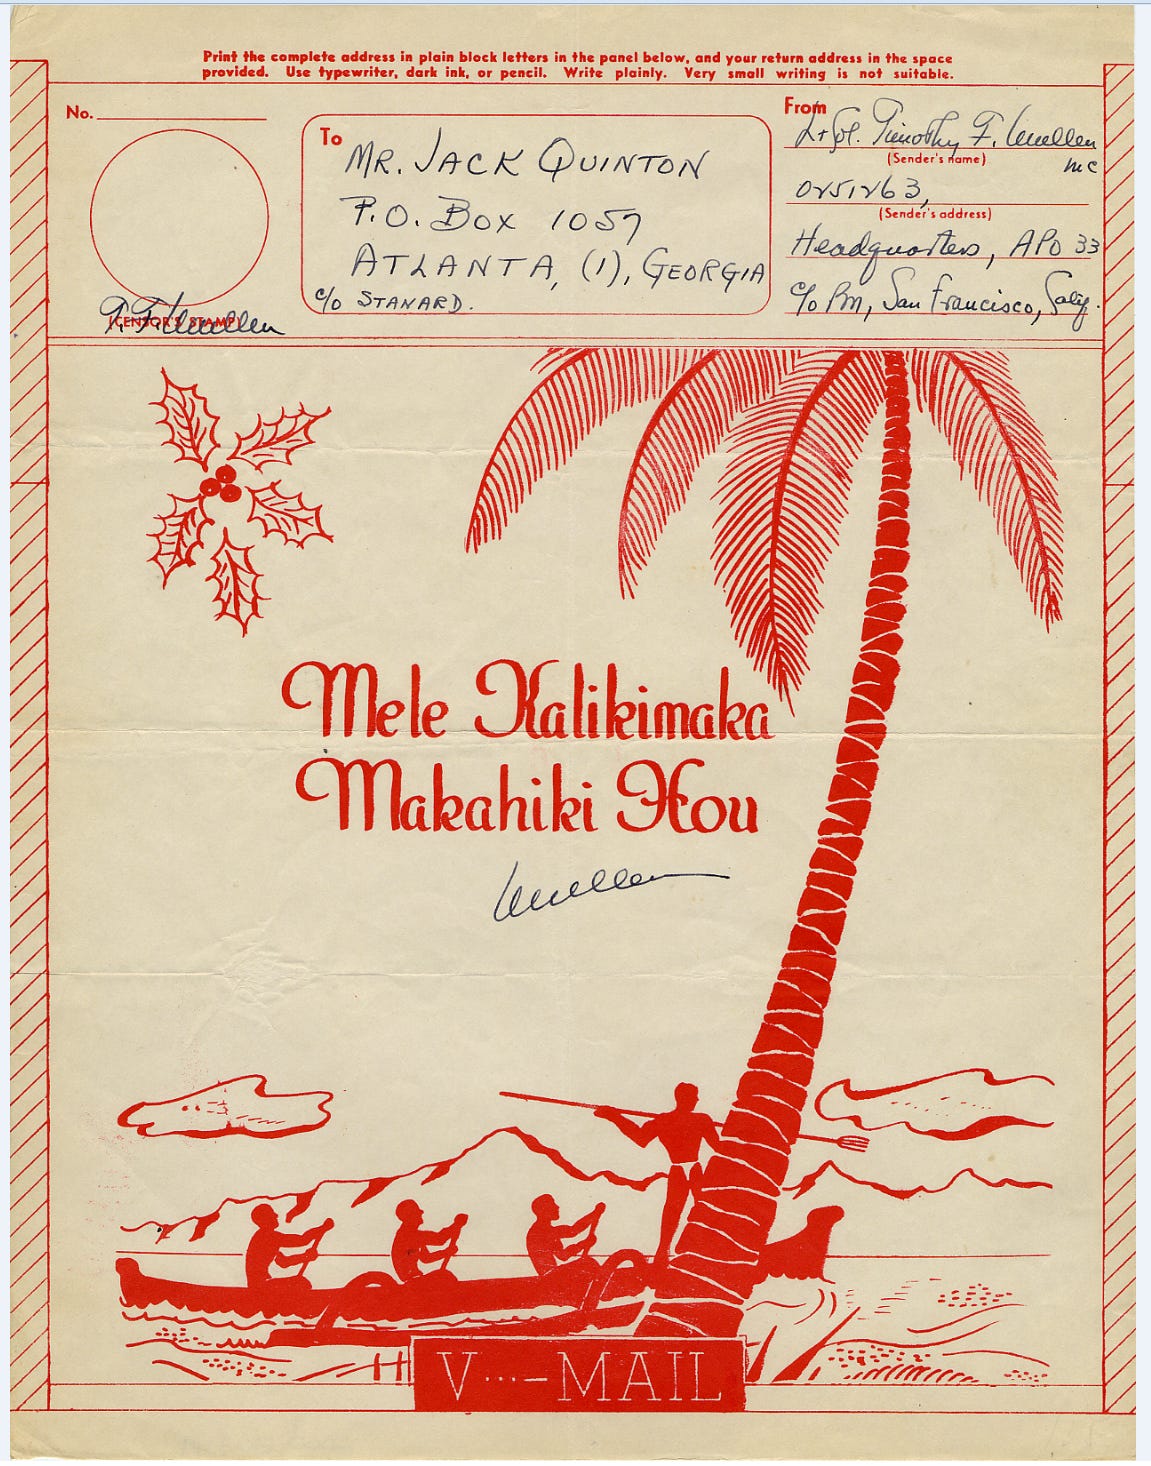 Print the complete address in plain block letters in the panel below, and your return address in the space
provided. Use typewriter, dark ink, or pencil. Write plainly. Very small writing is not suitable.
No.
(CENSOR'S STAMP)
To
MR. JACK QUINTON
P.O. BOX 1057
ATLANTA, (1), GEORGIA
c/o STANARD.
From
Lt Col. Timothy F.
(Sender's name)
MC
(Sender's address)
Headquarters, APO 33
c/o PM, San Francisco, Calif.
Mele Kalikimaka
Makahiki Hou
V···— MAIL